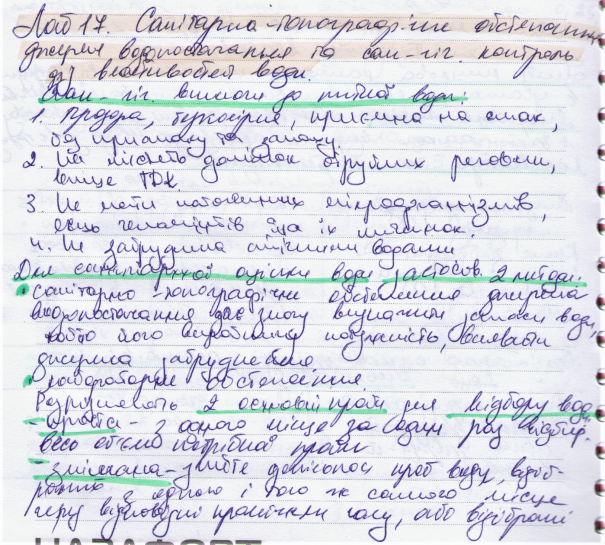 Лаб 17. Санітарно-топографічне обстеження
джерел водопостачання та сан-гіг. контроль
властивостей води.
Сан-гіг. вимоги до питної води:
1. Прозора, безколірна, приємна на смак,
без присмаку та запаху.
2. Не містить домішок отруйних речовин,
вище ГДК.
3. Не мати патогенних мікроорганізмів,
яєць гельмінтів та їх личинок.
4. Не забруднена стічними водами.
Для санітарної оцінки води застосов. 2 методи:
санітарно-топографічне обстеження джерела
водопостачання дає змогу визначити запаси води,
тобто його виробничу потужність, виявити
джерела забруднення
лабораторне обстеження
Розрізняють 2 основні проби для відбору води
- проста - з одного місця за один раз відбир.
весь об'єм потрібної проби
- змішана - злиття декількох проб води, відіб-
раних з одного і того ж самого місця
через відповідні проміжки часу, або відібрані